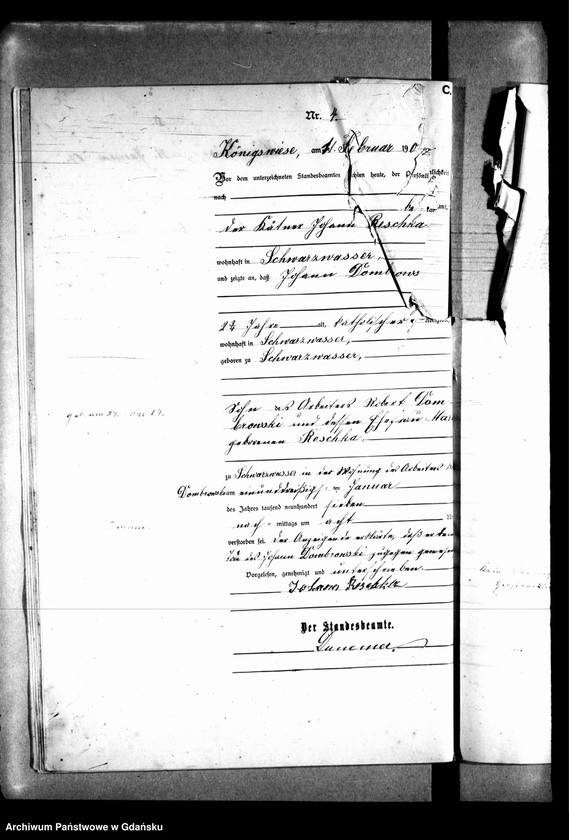 C.
Nr. 4
Königswiese, am 1. Februar 190 7
Vor dem unterzeichneten Standesbeamten erschien heute, der Persönlichkeit
nach
be kannt,
der Kätner Johann Reschka
wohnhaft in Schwarzwasser,
und zeigte an, daß Johann Dombrows
2½ Jahre alt, katholischer
wohnhaft in Schwarzwasser,
geboren zu Schwarzwasser,
Sohn des Arbeiters Robert Dom-
browski und dessen Ehefrau Mar
geborenen Reschka
zu Schwarzwasser in der Wohnung des Arbeiters
Dombrowski am einunddreißigsten Januar
des Jahres tausend neunhundert sieben
nach mittags um acht
verstorben sei. Der Anzeigende erklärte, daß er beim
Tode des Johann Dombrowski zugegen gewesen
Vorgelesen, genehmigt und unterschrieben
Johann Reschka
Der Standesbeamte.
Archiwum Państwowe w Gdańsku